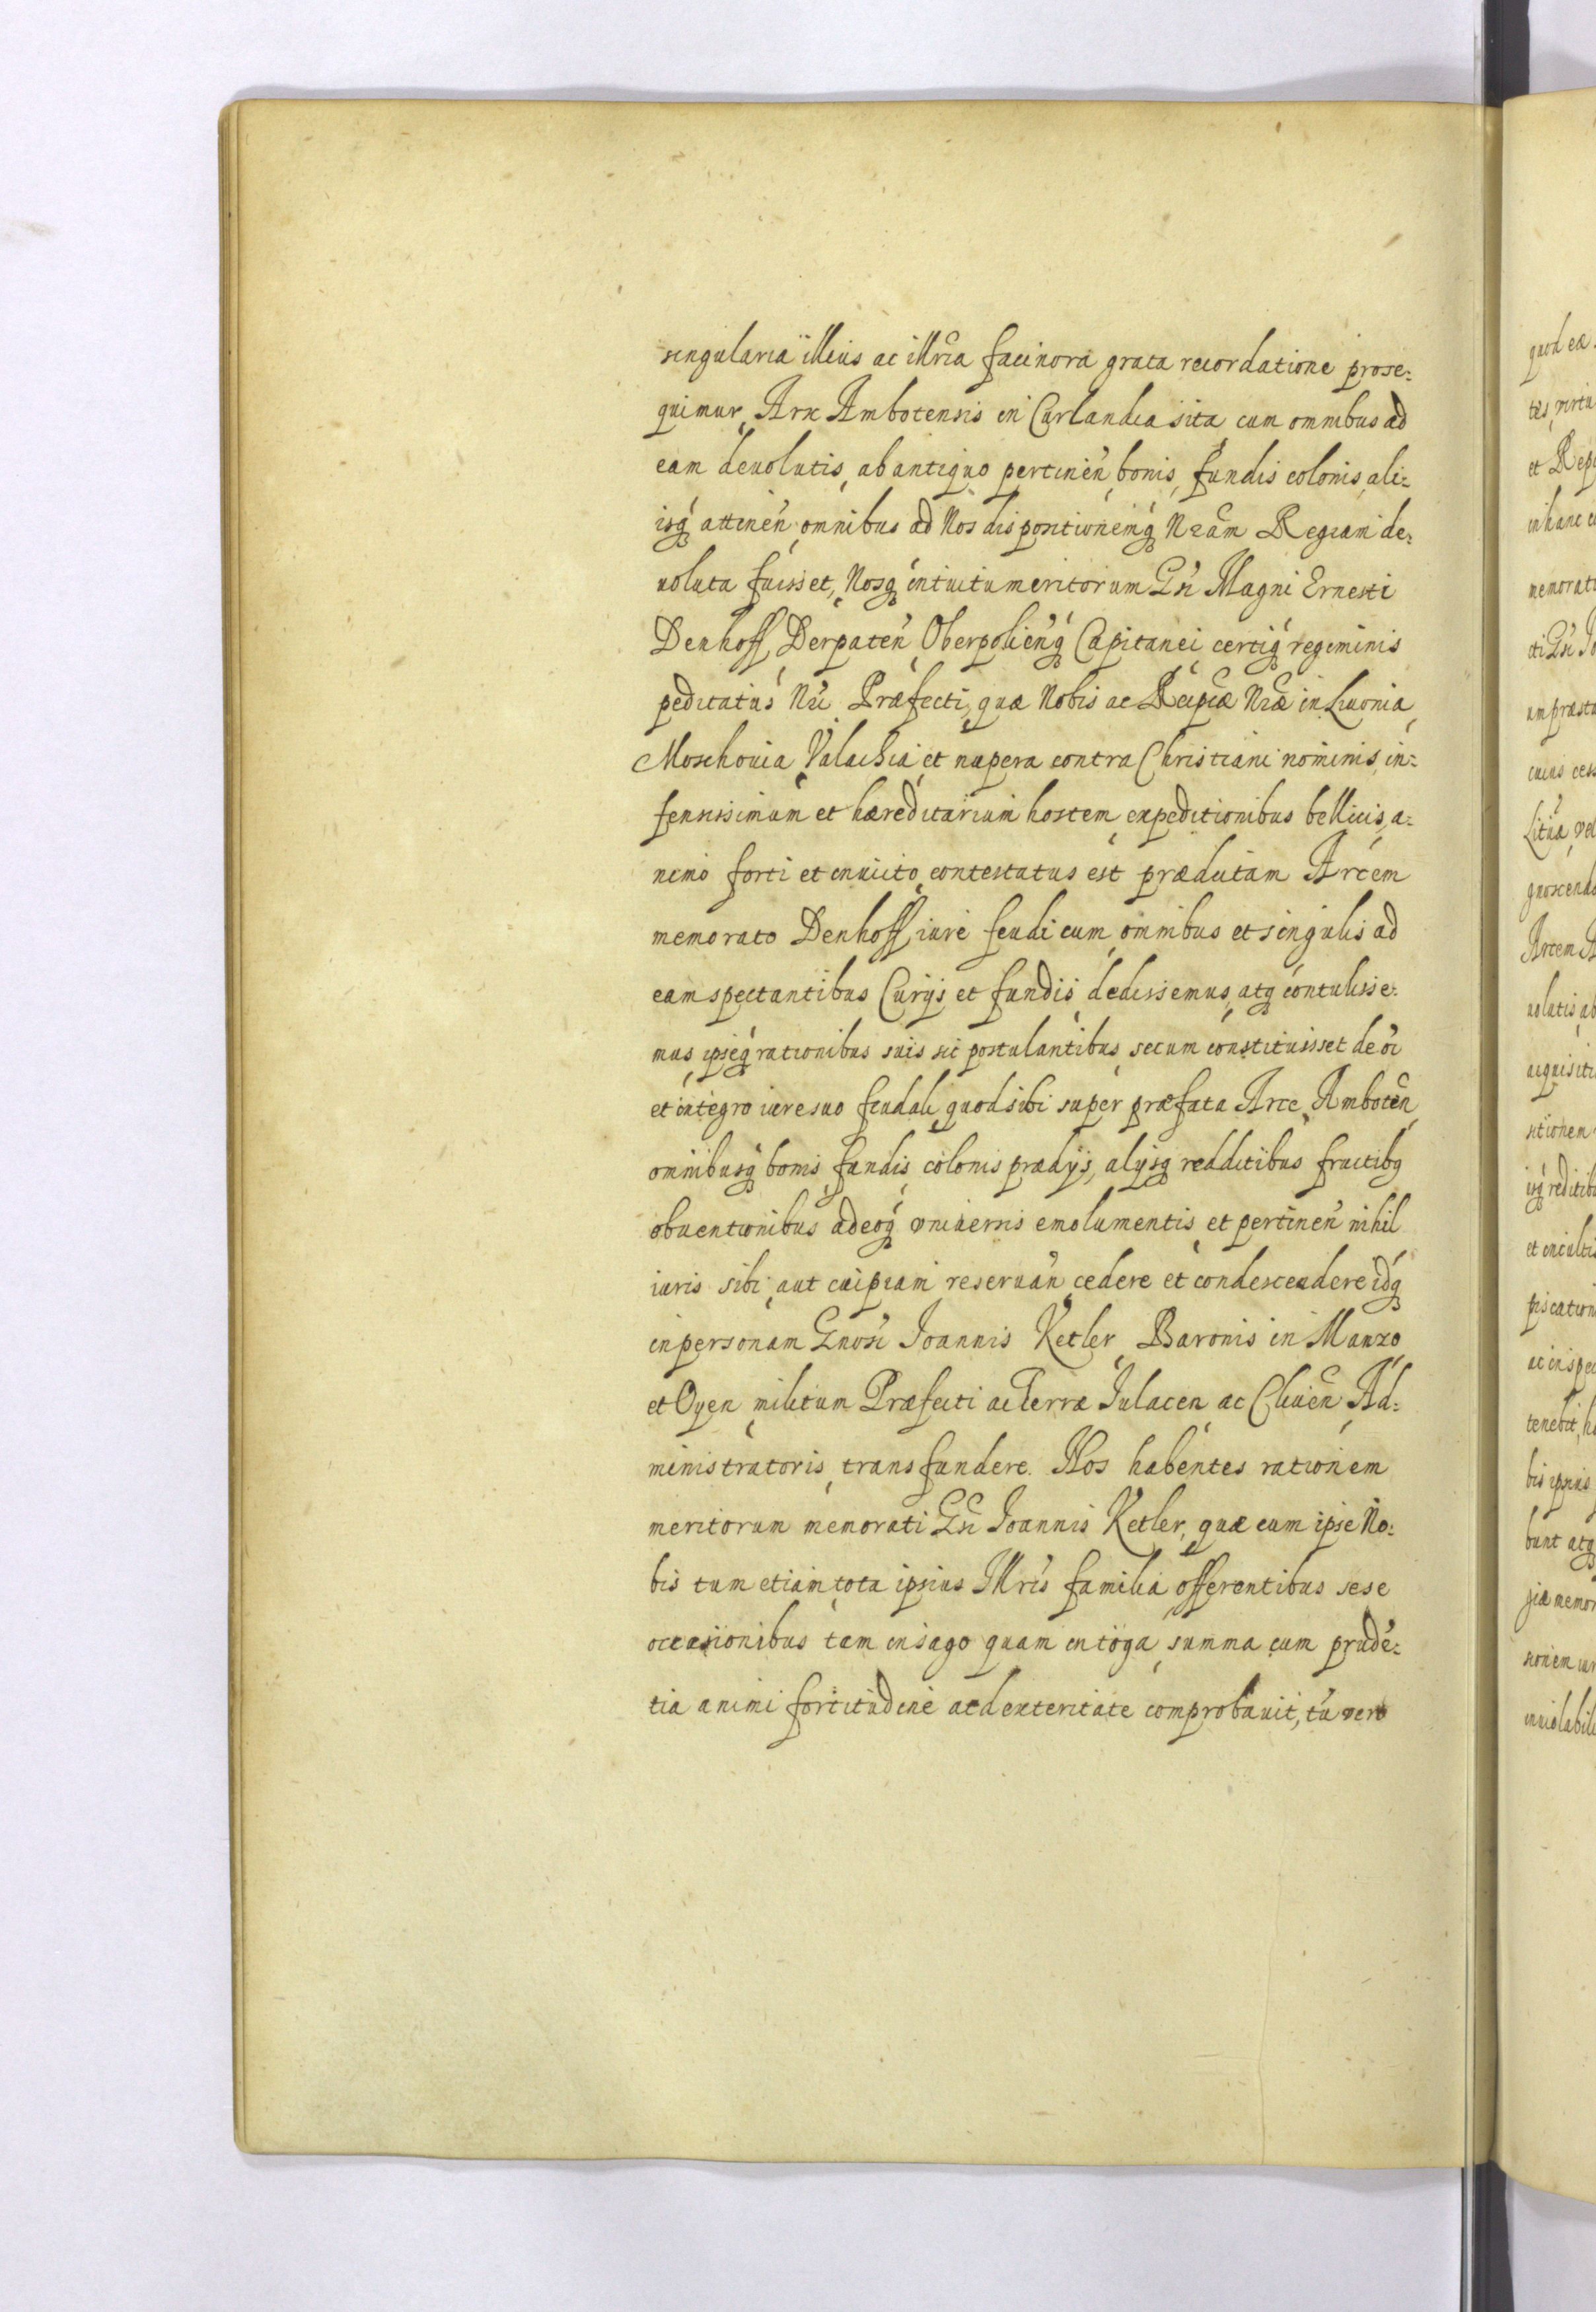 singularia illius ac illr̃ia facinora grata recordatione prose:
quimur, Arx Ambotensis in Curlandia sita cum omnibus ad
eam deuolutis, ab antiquo pertinen̄, bonis, fundis colonis, ali:
isq́ attinen̄, omnibus ad Nos dispositionemq́ Nr̃am Regiam de:
uoluta fuisset, Nosq́ intuitu meritorum Gsi Magni Ernesti
Denhoff, Derpaten̄, Oberpolien̄q́ Capitanei certiq́ regiminis
peditatus Nr̃i Præfecti, quæ Nobis ac Reipcæ Nr̃æ in Liuonia,
Moschouia, Valachia, et nupera contra Christiani nominis, in:
fensissimum et hæreditarium hostem, expeditionibus bellicis, a:
nimo forti et inuicto, contestatus est prædictam Arcem
memorato Denhoff, iure feudi cum, omnibus et singulis ad
eam spectantibus Curijs et fundis, dedissemus, atq́ contulisse:
mus, ipseq́ rationibus suis sic postulantibus, secum constituisset de oĩ
et integro iure suo feudali, quod sibi super præfata Arce, Amboten̄,
omnibusq́ bonis, fundis, colonis prædijs, alijsq́ redditibus fructibq
obuentionibus adeoq́ vniuersis emolumentis, et pertinen̄ nihil
iuris sibi, aut cuipiam reseruan̄, cedere et condescendere idq́
in personam Gnosi Joannis Ketler, Baronis in Manzo,
et Oyen, militum Præfecti ac Terræ Julacen, ac Cliuen̄, Ad:
ministratoris, transfundere. Nos habentes rationem
meritorum memorati Gsi Joannis Ketler, quæ cum ipse No:
bis tum etiam, tota ipsius Illris familia offerentibus sese
occasionibus tam in sago quam in toga, summa cum prudē:
tia animi fortitudine ac dexteritate comprobauit, tū vero